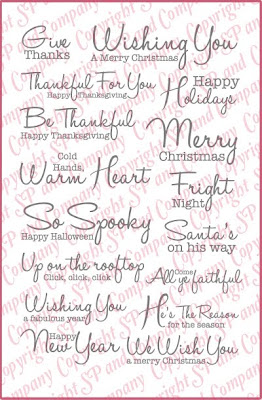 Give
Thanks
Wishing You
A Merry Christmas
Thankful For You
Happy Thanksgiving
Happy
Holidays
Be Thankful
Happy Thanksgiving
Merry
Christmas
Cold
Hands,
Warm Heart
Fright
Night
So Spooky
Happy Halloween
Santa's
on his way
Up on the rooftop
Click, click, click
Come
All ye faithful
Wishing You
a fabulous year
He's The Reason
for the season
Happy
New Year
We Wish You
a merry Christmas
Copyright SP and Company